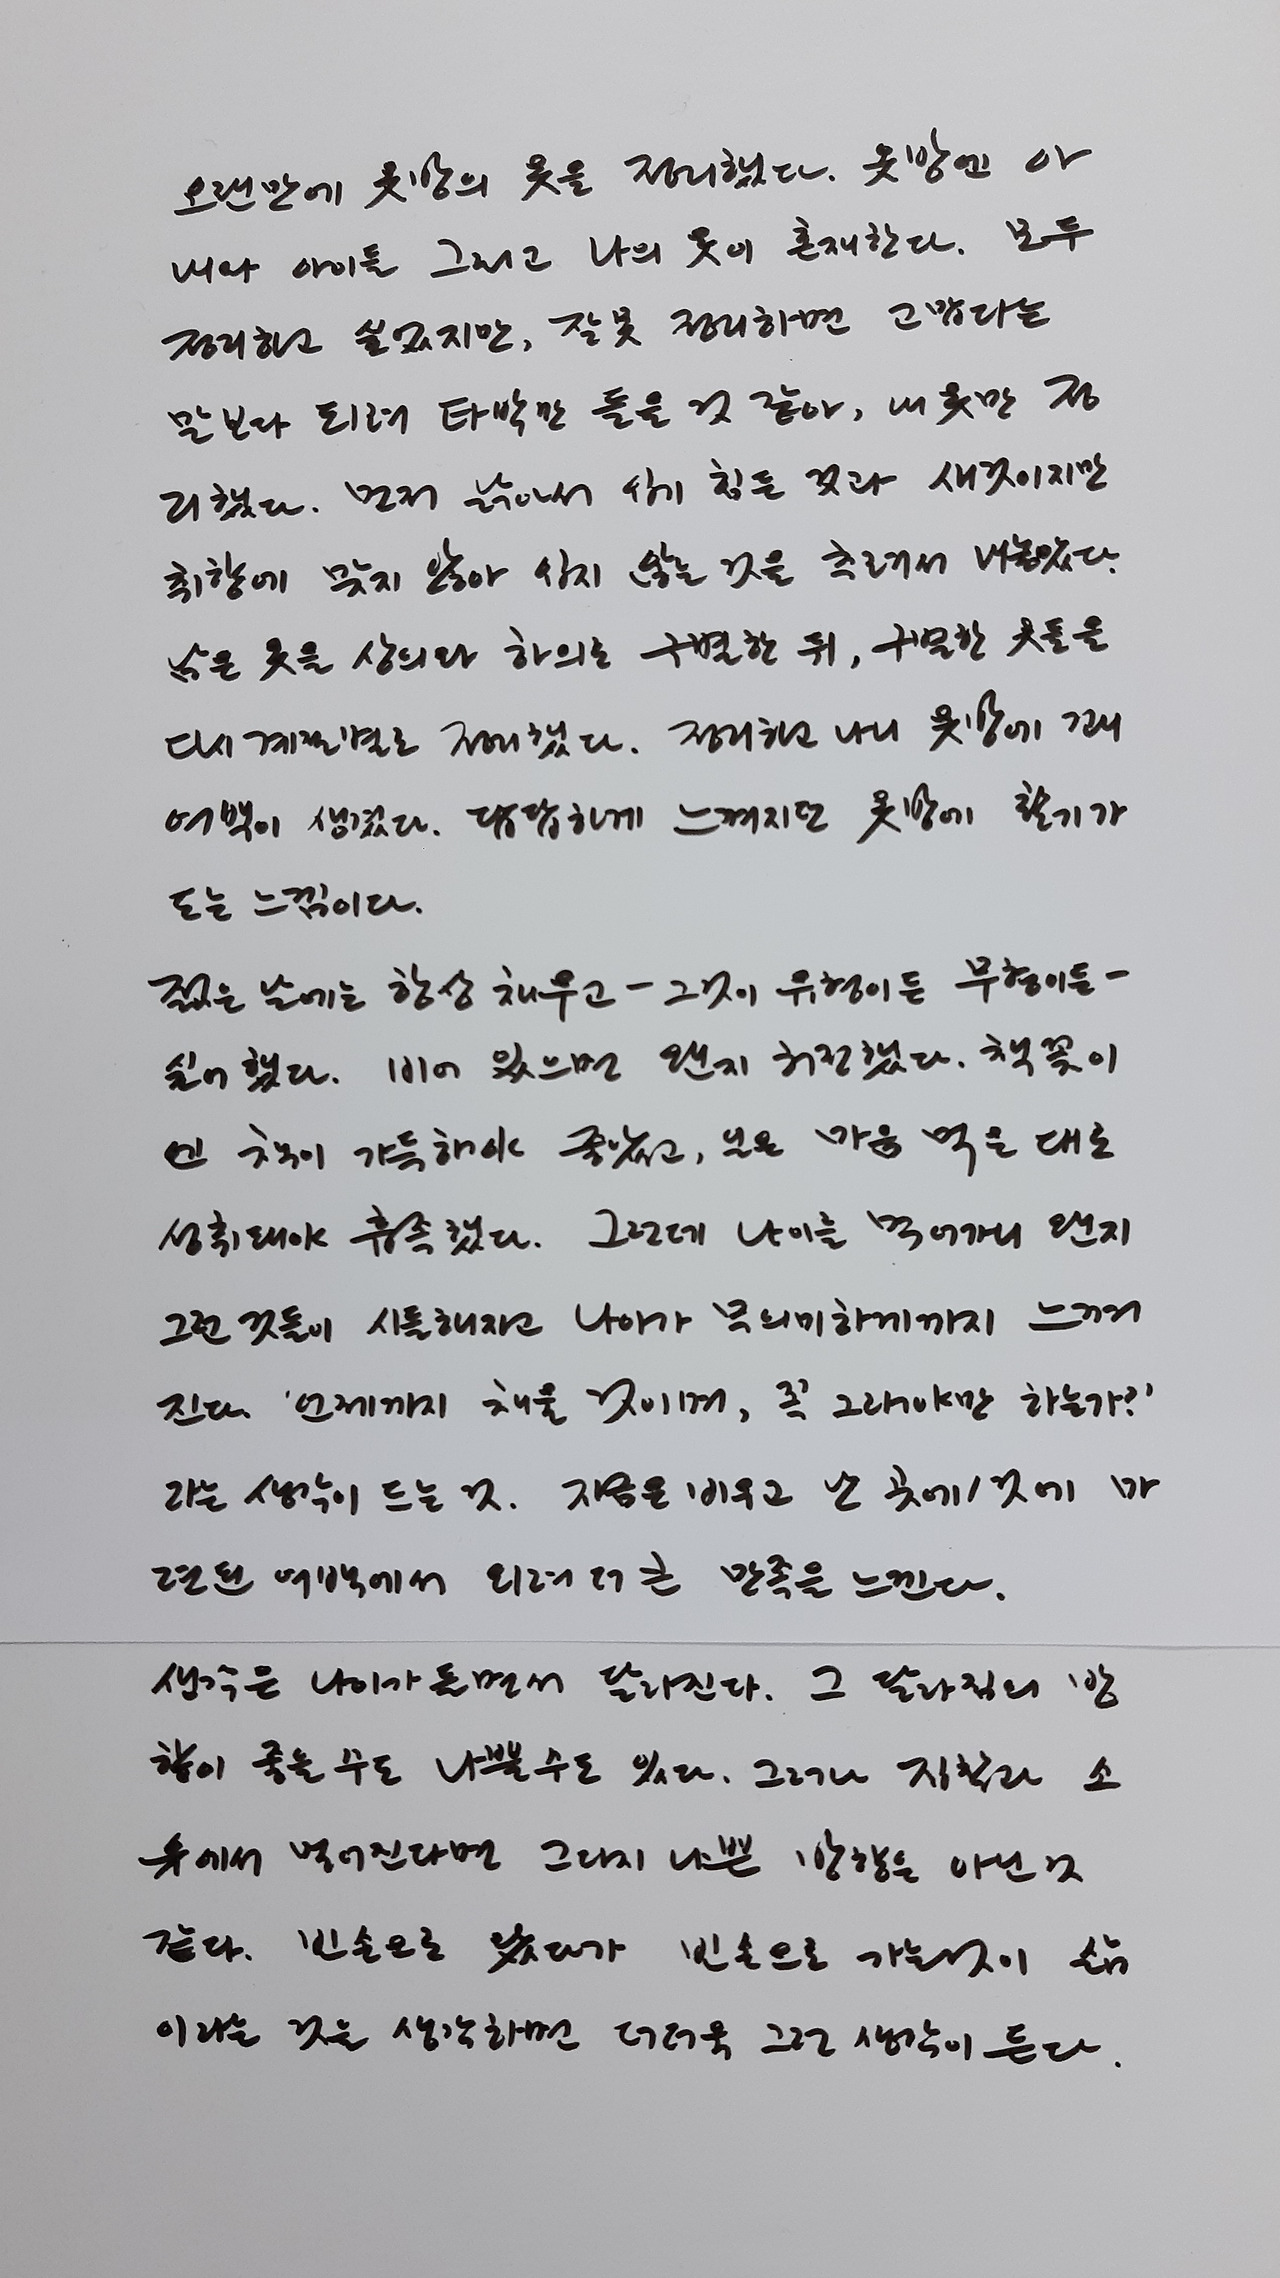 오랜만에 옷방의 옷을 정리했다. 옷방엔 아
내와 아이들 그리고 나의 옷이 혼재한다. 모두
정리하고 싶었지만, 잘못 정리하면 고맙다는
말보다 되려 타박만 들을 것 같아, 내 옷만 정
리했다. 먼저 낡아서 입기 힘든 것과 새것이지만
취향에 맞지 않아 입지 않는 것을 추려서 내놓았다.
남은 옷을 상의와 하의로 구별한 뒤, 구별한 옷들을
다시 계절별로 정리했다. 정리하고 나니 옷방에 꽤
여백이 생겼다. 답답하게 느껴지던 옷방에 활기가
도는 느낌이다.
젊은 날에는 항상 채우고-그것이 유형이든 무형이든-
싶어 했다. 비어 있으면 왠지 허전했다. 책꽂이
엔 책이 가득해야 좋았고, 일은 마음 먹은 대로
성취돼야 흡족했다. 그런데 나이를 먹어가니 왠지
그런 것들이 시들해지고 나아가 무의미하게까지 느껴
진다. '언제까지 채울 것이며, 꼭 그래야만 하는가?'
라는 생각이 드는 것. 지금은 비우고 난 곳에/것에 마
련된 여백에서 외려 더 큰 만족을 느낀다.
생각은 나이가 들면서 달라진다. 그 달라짐의 방
향이 좋을 수도 나쁠 수도 있다. 그러나 집착과 소
유에서 멀어진다면 그다지 나쁜 방향은 아닌 것
같다. 빈손으로 왔다가 빈손으로 가는 것이 삶
이라는 것을 생각하면 더더욱 그런 생각이 든다.